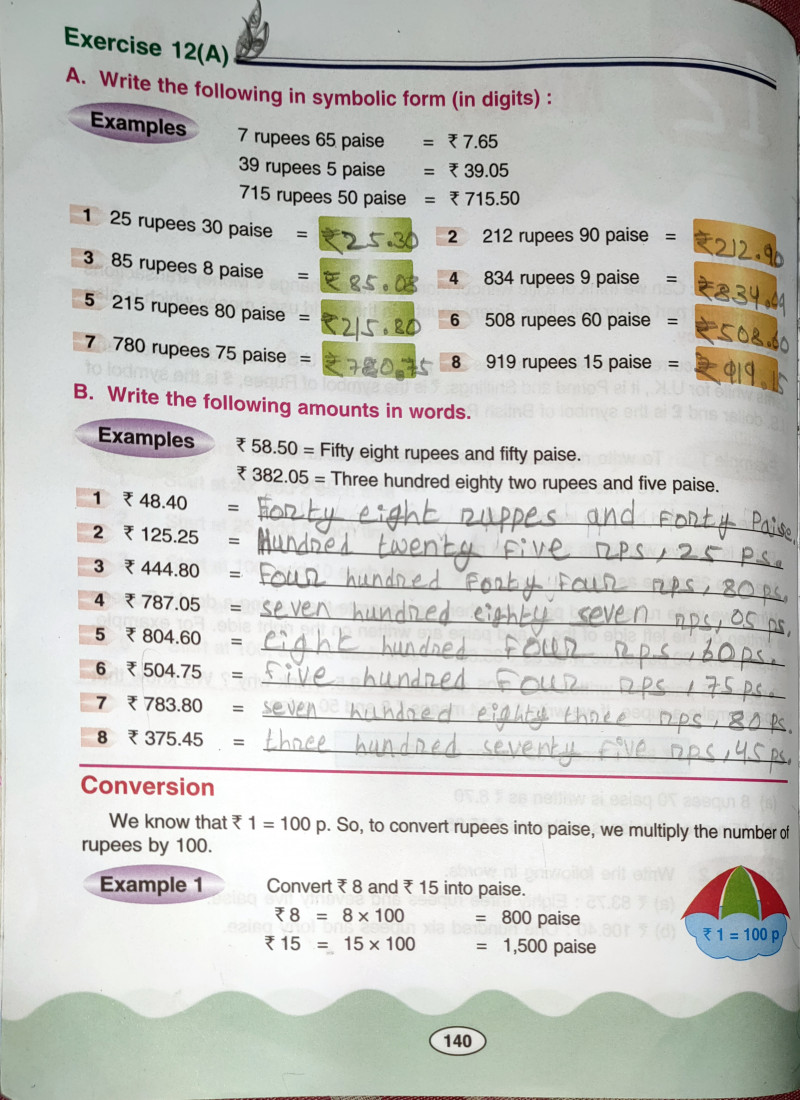 Exercise 12(A)
A. Write the following in symbolic form (in digits) :
Examples
7 rupees 65 paise = ₹ 7.65
39 rupees 5 paise = ₹ 39.05
715 rupees 50 paise = ₹ 715.50
1 25 rupees 30 paise = ₹25.30 2 212 rupees 90 paise = ₹212.90
3 85 rupees 8 paise = ₹ 85.08 4 834 rupees 9 paise = ₹834.09
5 215 rupees 80 paise = ₹215.80 6 508 rupees 60 paise = ₹508.60
7 780 rupees 75 paise = ₹780.75 8 919 rupees 15 paise = ₹ 919.15
B. Write the following amounts in words.
Examples
₹ 58.50 = Fifty eight rupees and fifty paise.
₹ 382.05 = Three hundred eighty two rupees and five paise.
1 ₹ 48.40 = Forty eight ruppes and Forty Paise.
2 ₹ 125.25 = Hundred twenty five rps, 25 ps.
3 ₹ 444.80 = Four hundred Forty Four rps, 80 ps.
4 ₹ 787.05 = seven hundred eighty seven rps, 05 ps.
5 ₹ 804.60 = eight hundred Four rps, 60 ps.
6 ₹ 504.75 = five hundred Four rps, 75 ps.
7 ₹ 783.80 = seven hundred eighty three rps, 80 ps.
8 ₹ 375.45 = three hundred seventy five rps, 45 ps.
Conversion
We know that ₹ 1 = 100 p. So, to convert rupees into paise, we multiply the number of
rupees by 100.
Example 1 Convert ₹ 8 and ₹ 15 into paise.
₹ 8 = 8 × 100 = 800 paise
₹ 15 = 15 × 100 = 1,500 paise
₹ 1 = 100 p
140